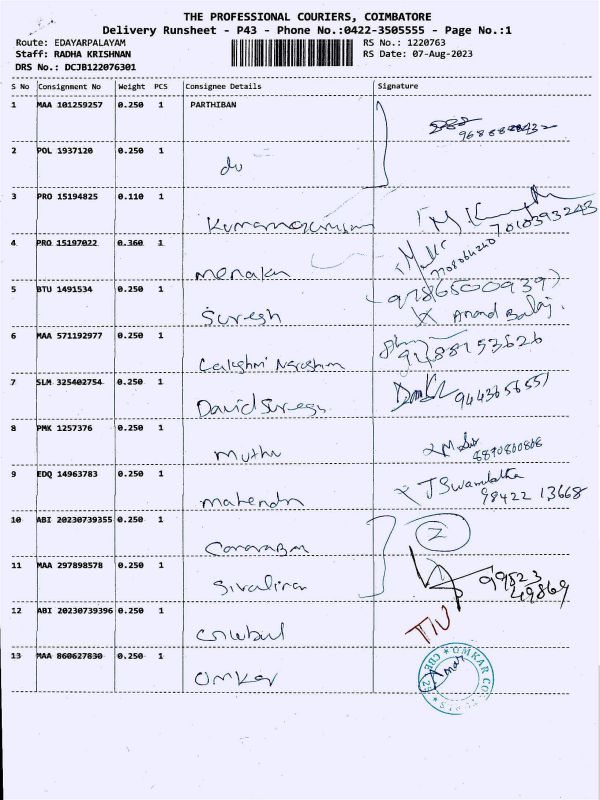 THE PROFESSIONAL COURIERS, COIMBATORE
Delivery Runsheet - P43 - Phone No.:0422-3505555 - Page No.:1
Route: EDAYARPALAYAM
Staff: RADHA KRISHNAN
DRS No.: DCJB122076301
RS No.: 1220763
RS Date: 07-Aug-2023
S No Consignment No Weight PCS Consignee Details Signature
1 MAA 101259257 0.250 1 PARTHIBAN
2 POL 1937120 0.250 1 do
3 PRO 15194825 0.110 1 7010393243
4 PRO 15197022 0.360 1 menaka
5 BTU 1491534 0.250 1 Suresh 9786500939
Anand Balaj.
6 MAA 571192977 0.250 1 Lakshmi 9488153626
7 SLM 325402754 0.250 1 David Suresh
8 PMK 1257376 0.250 1 muthu 8870800808
9 EDQ 14963783 0.250 1 J Swarnlatha
98422 13668
10 ABI 20230739355 0.250 1 2
11 MAA 297898578 0.250 1 99523
49869
12 ABI 20230739396 0.250 1
13 MAA 860627830 0.250 1 Omkar Amar
OMKAR CBE